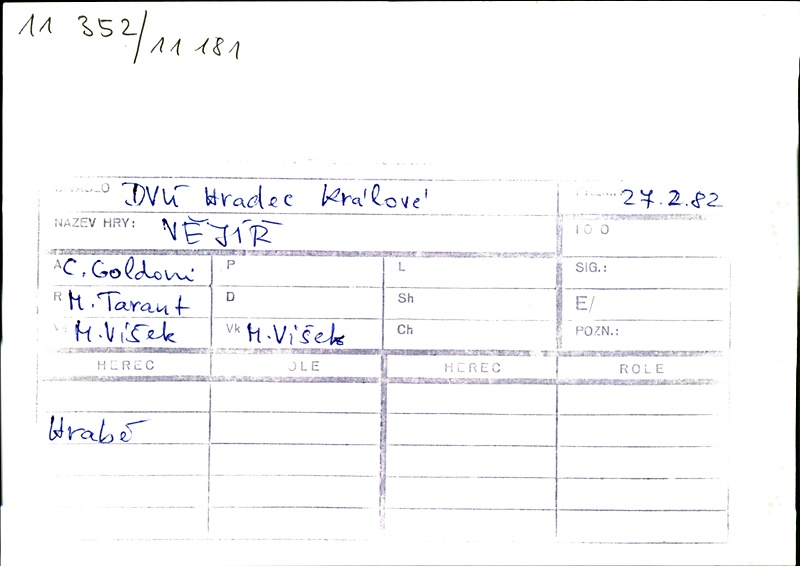 11 352/11 181
DVÚ Hradec Králové 27.2.82
NÁZEV HRY: VĚJÍŘ
A C. Goldoni P L SIG.:
R M. Tarant D Sh E/
M. Víšek Vk M. Víšek Ch POZN.:
HEREC OLE HEREC ROLE
Hrabě